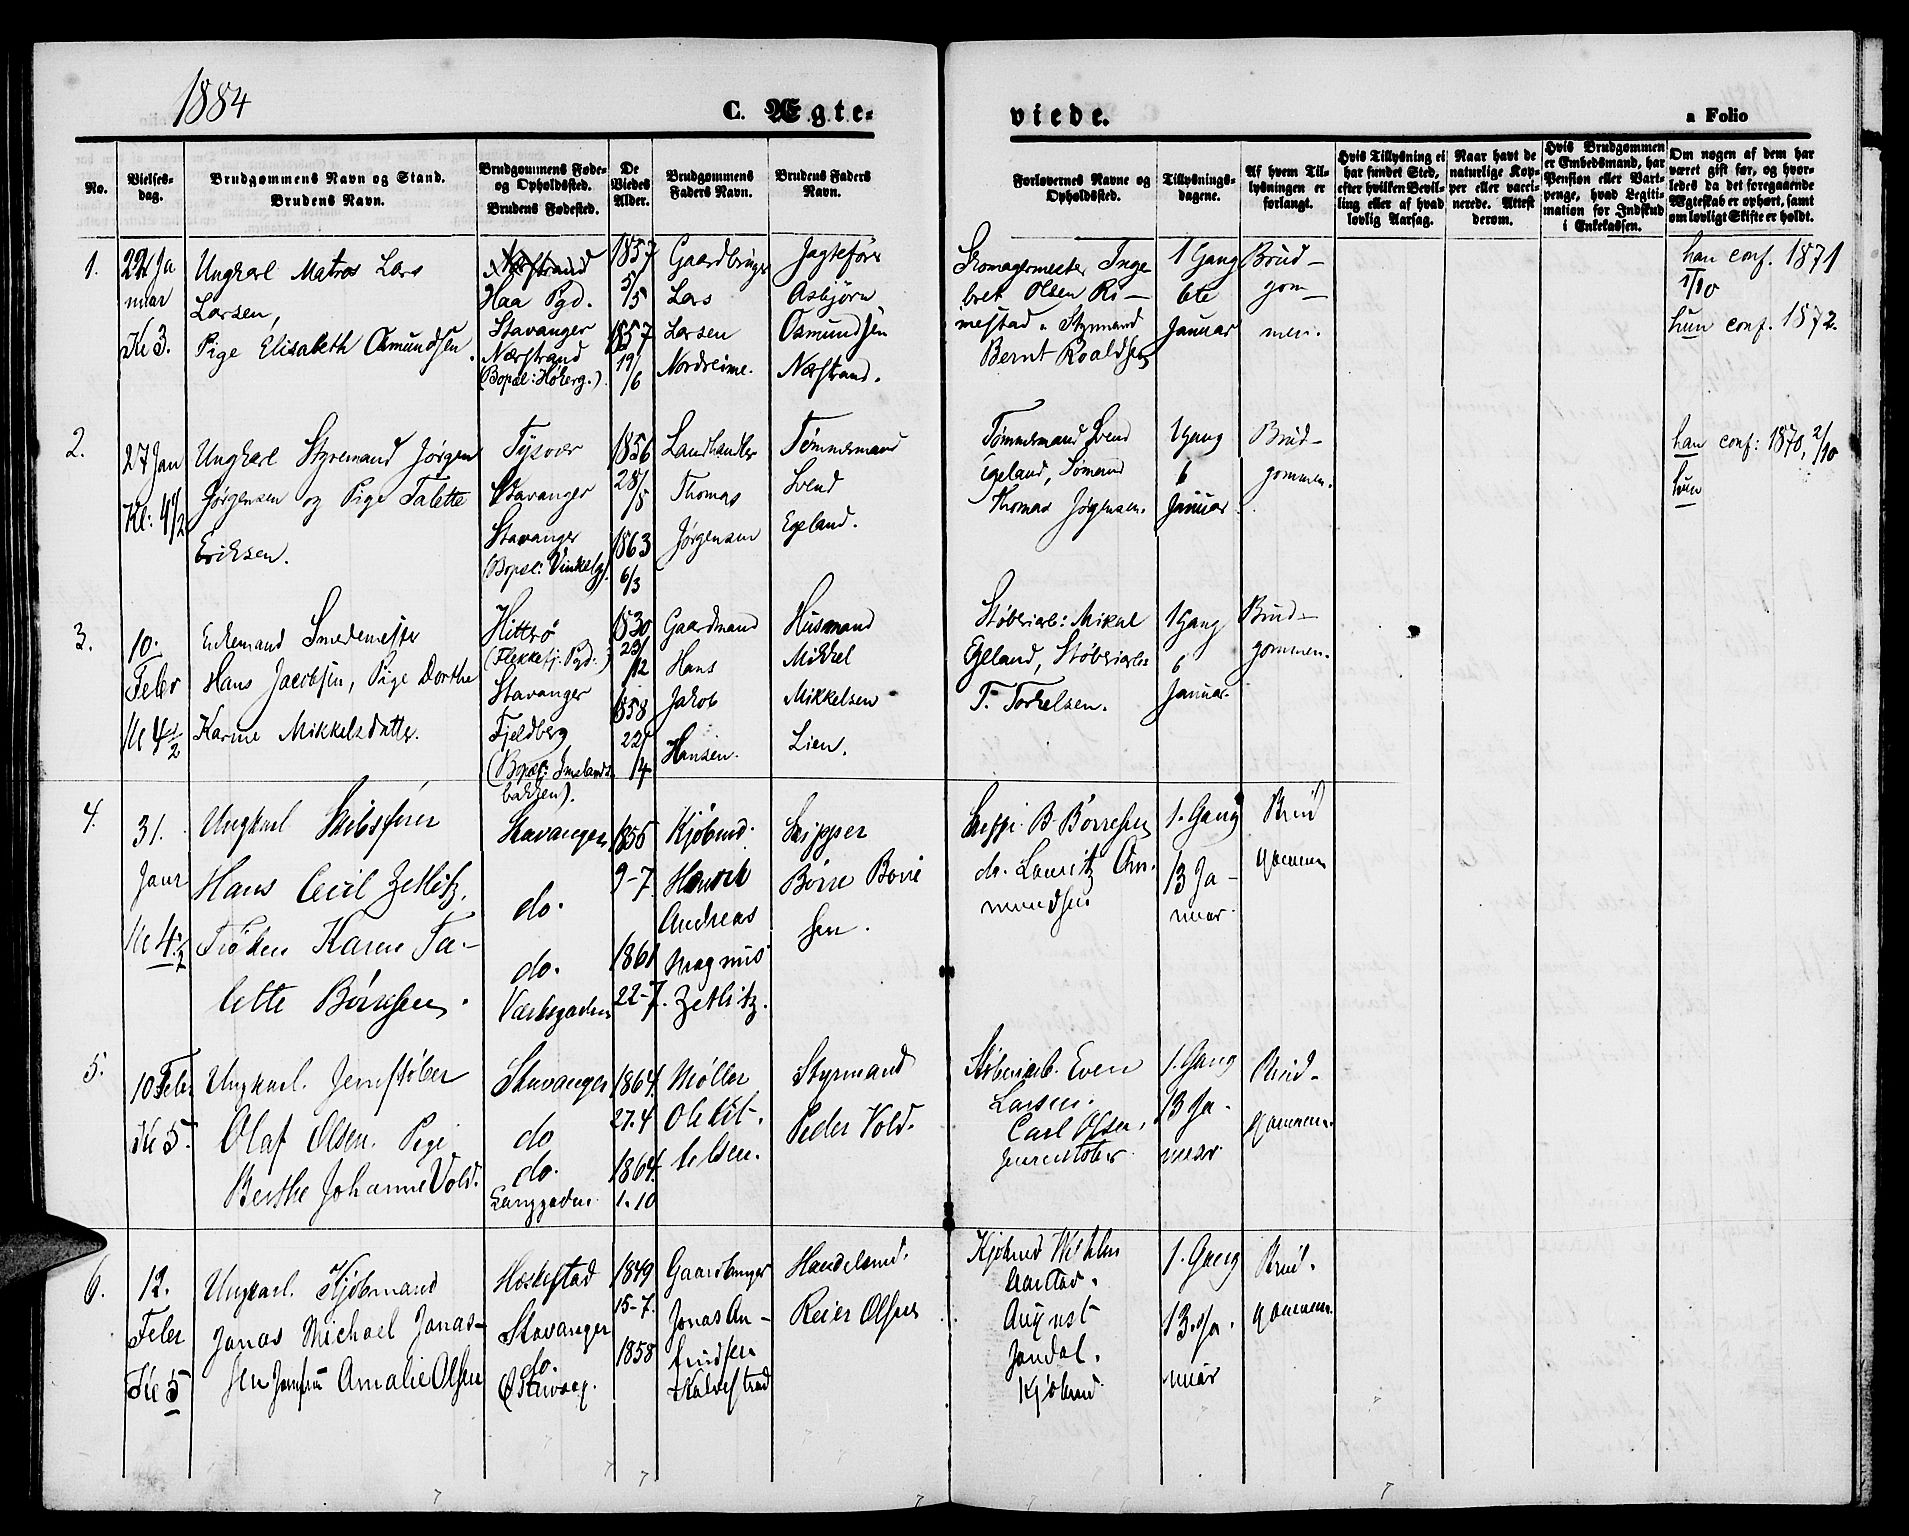 1884
C. Ægte-
viede.
a Folio
No.
Vielses-
dag.
Brudgommens Navn og Stand.
Brudens Navn.
Brudgommens Føde-
og Opholdssted.
Brudens Fødested.
De
Viedes
Alder.
Brudgommens
Faders Navn.
Brudens Faders
Navn.
Forlovernes Navne og
Opholdssted.
Tillysnings-
dagene.
Af hvem Til-
lysningen er
forlangt.
Hvis Tillysning ei
har fundet Sted,
efter hvilken Bevil-
ling eller af hvad
lovlig Aarsag.
Naar havt de
naturlige Kop-
per eller vacci-
nerede. Attest
derom.
Hvis Brudgommen
er Embedsmand, har
Pension eller Vart-
penge, hvad Legiti-
mation for Indskud
i Enkekassen.
Om nogen af dem har
været gift før, og hvor-
ledes da det foregaaende
Ægteskab er ophørt, samt
om lovligt Skifte er holdt.
1.
22 Ja
nuar
Kl 3.
Ungkarl Matros Lars
Larsen,
Pige Elisabeth Osmundsen.
Nærstrand
Haa Pgd.
Stavanger
Nærstrand
(Bopæl: Høberg.)
1857
5/5
1857
19/6
Gaardbruger
Lars
Larsen
Nordreime.
Jagtefører
Asbjørn
Osmundsen
Nærstrand.
Skomagermester Inge
bret Olsen Ri-
mestad. Styrmand
Bernt Roaldsen
1 Gang
6te
Januar
Brud-
gom-
men.
han conf. 1871
1/10
hun conf. 1872.
2.
27 Jan
Kl: 4 1/2
Ungkarl Styremand Jørgen
Jørgensen og Pige Talette
Eriksen.
Tysvær
Stavanger
Stavanger
(Bopæl: Vinkelg.)
1856
28/5
1863
6/3
Landhandler
Thomas
Jørgensen
Tømmermand
Svend
Egeland.
Tømmermand Svend
Egeland, Sømand
Thomas Jørgensen.
1 Gang
6
Januar.
Brud-
gommen.
han conf: 1870, 2/10
hun
3.
10.
Febr
Kl 4 1/2
Enkemand Smedemester
Hans Jacobsen, Pige Dorthe
Karine Mikkelsdatter.
Hitterø
(Flekkefj: Pgd.)
Stavanger
Fjeldberg
(Bopæl:
bakken).
1830
23/12
1858
22/4
Gaardmand
Hans
Jakob
Hansen.
Husmand
Mikkel
Mikkelsen
Lien.
Støberiarb: Mikal
Egeland, Støberiarb:
T. Torkelsen.
1 Gang
6
Januar.
Brud-
gommen.
4.
31.
Janr
Kl 4 1/2
Ungkarl Skibsfører
Hans Cecil Zetlitz.
Frøken Karen Ta-
lette Børresen.
Stavanger
do.
do.
Værksgaden
1855
9-7.
1861
22-7.
Kjøbmd.
Henrik
Andreas
Magnus
Zetlitz.
Skipper
Børre Børre
sen.
Skipp. B. Børresen
do. Lauritz Om-
mundsen
1. Gang
13 Ja-
nuar.
Brud
gommen
5.
10 Febr
Kl 5.
Ungkarl. Jernstøber
Olaf Olsen. Pige
Berthe Johanne Vold.
Stavanger
do
do.
Langgaden.
1864.
27.4
1864.
1.10
Møller
Ole Kit-
telsen.
Styrmand
Peder Vold.
Støberiarb. Even
Larsen.
Carl Olsen,
Jernstøber.
1. Gang
13 Ja-
nuar
Brud-
gommen.
6.
12.
Febr
Kl 5
Ungkarl. Kjøbmand
Jonas Michael Jonas-
sen Jomfru Amalie Olsen
Hoskestad
Stavanger
do.
Østervaag.
1849
15-7.
1858
Gaardbruger
Jonas An-
Halvestrad
Handelsmd.
Reier Olsen
Kjøbmd Wilhelm
Aarstad.
August
Jondal.
Kjøbmd
1. Gang
13. Ja.
nuar
Brud.
gommen.